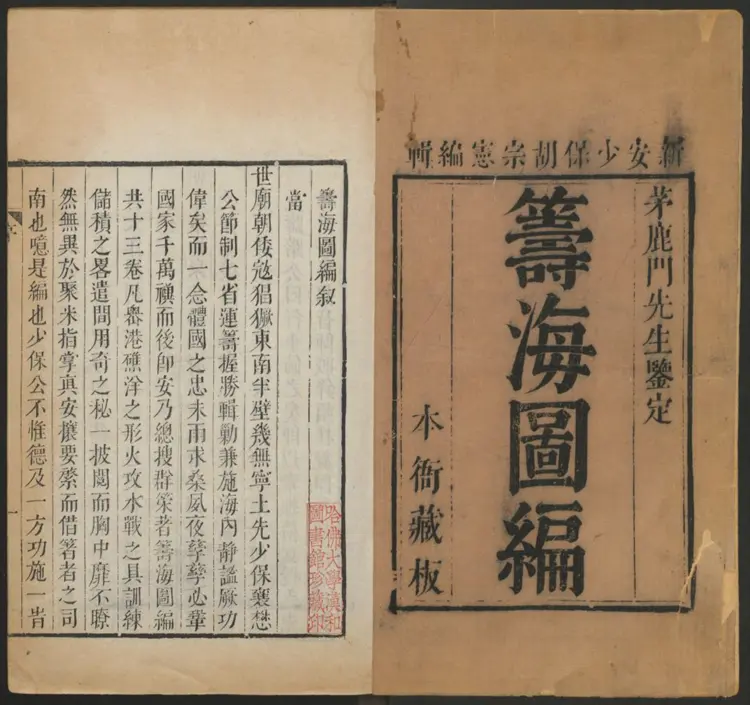 新安少保胡宗憲編輯
茅鹿門先生鑒定
籌海圖編
本衙藏板
籌海圖編叙
當
世廟朝倭寇猖獗東南半壁幾無寧土先少保襄懋
公節制七省運籌握勝輯勦兼施海內靜謐厥功
偉矣而一念體國之忠未雨求桑夙夜孳孳必鞏
國家千萬禩而後卽安乃總搜群策著籌海圖編
共十三卷凡嶴港礁洋之形火攻水戰之具訓練
儲積之畧遣間用奇之秘一披閱而胸中靡不瞭
然無異於聚米指掌真安攘要而借箸者之司
南也噫是編也少保公不惟德及一方功施一旹
一
哈佛大學漢和
圖書館珍藏印